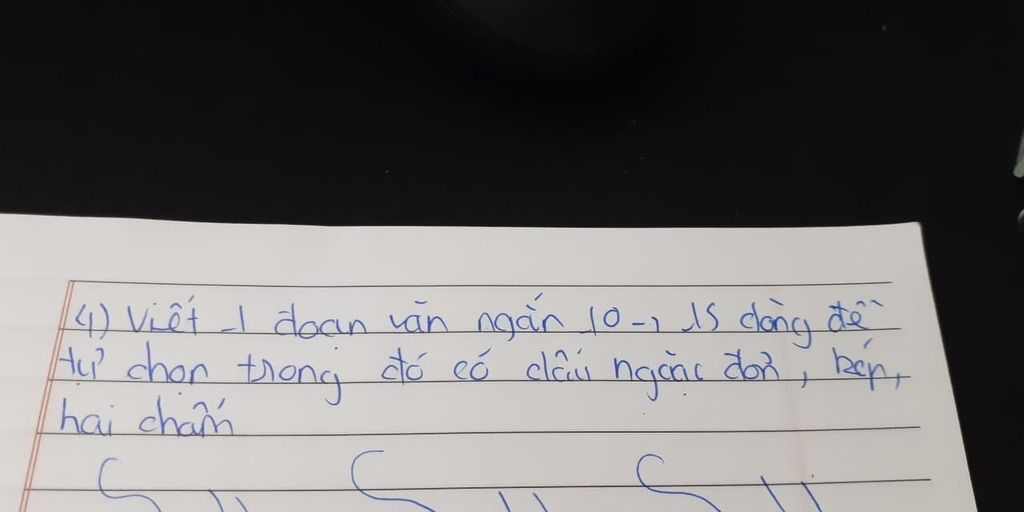 4) Viết 1 đoạn văn ngắn 10 → 15 dòng đề
tự chọn trong đó có dấu ngoặc đơn, kép,
hai chấm